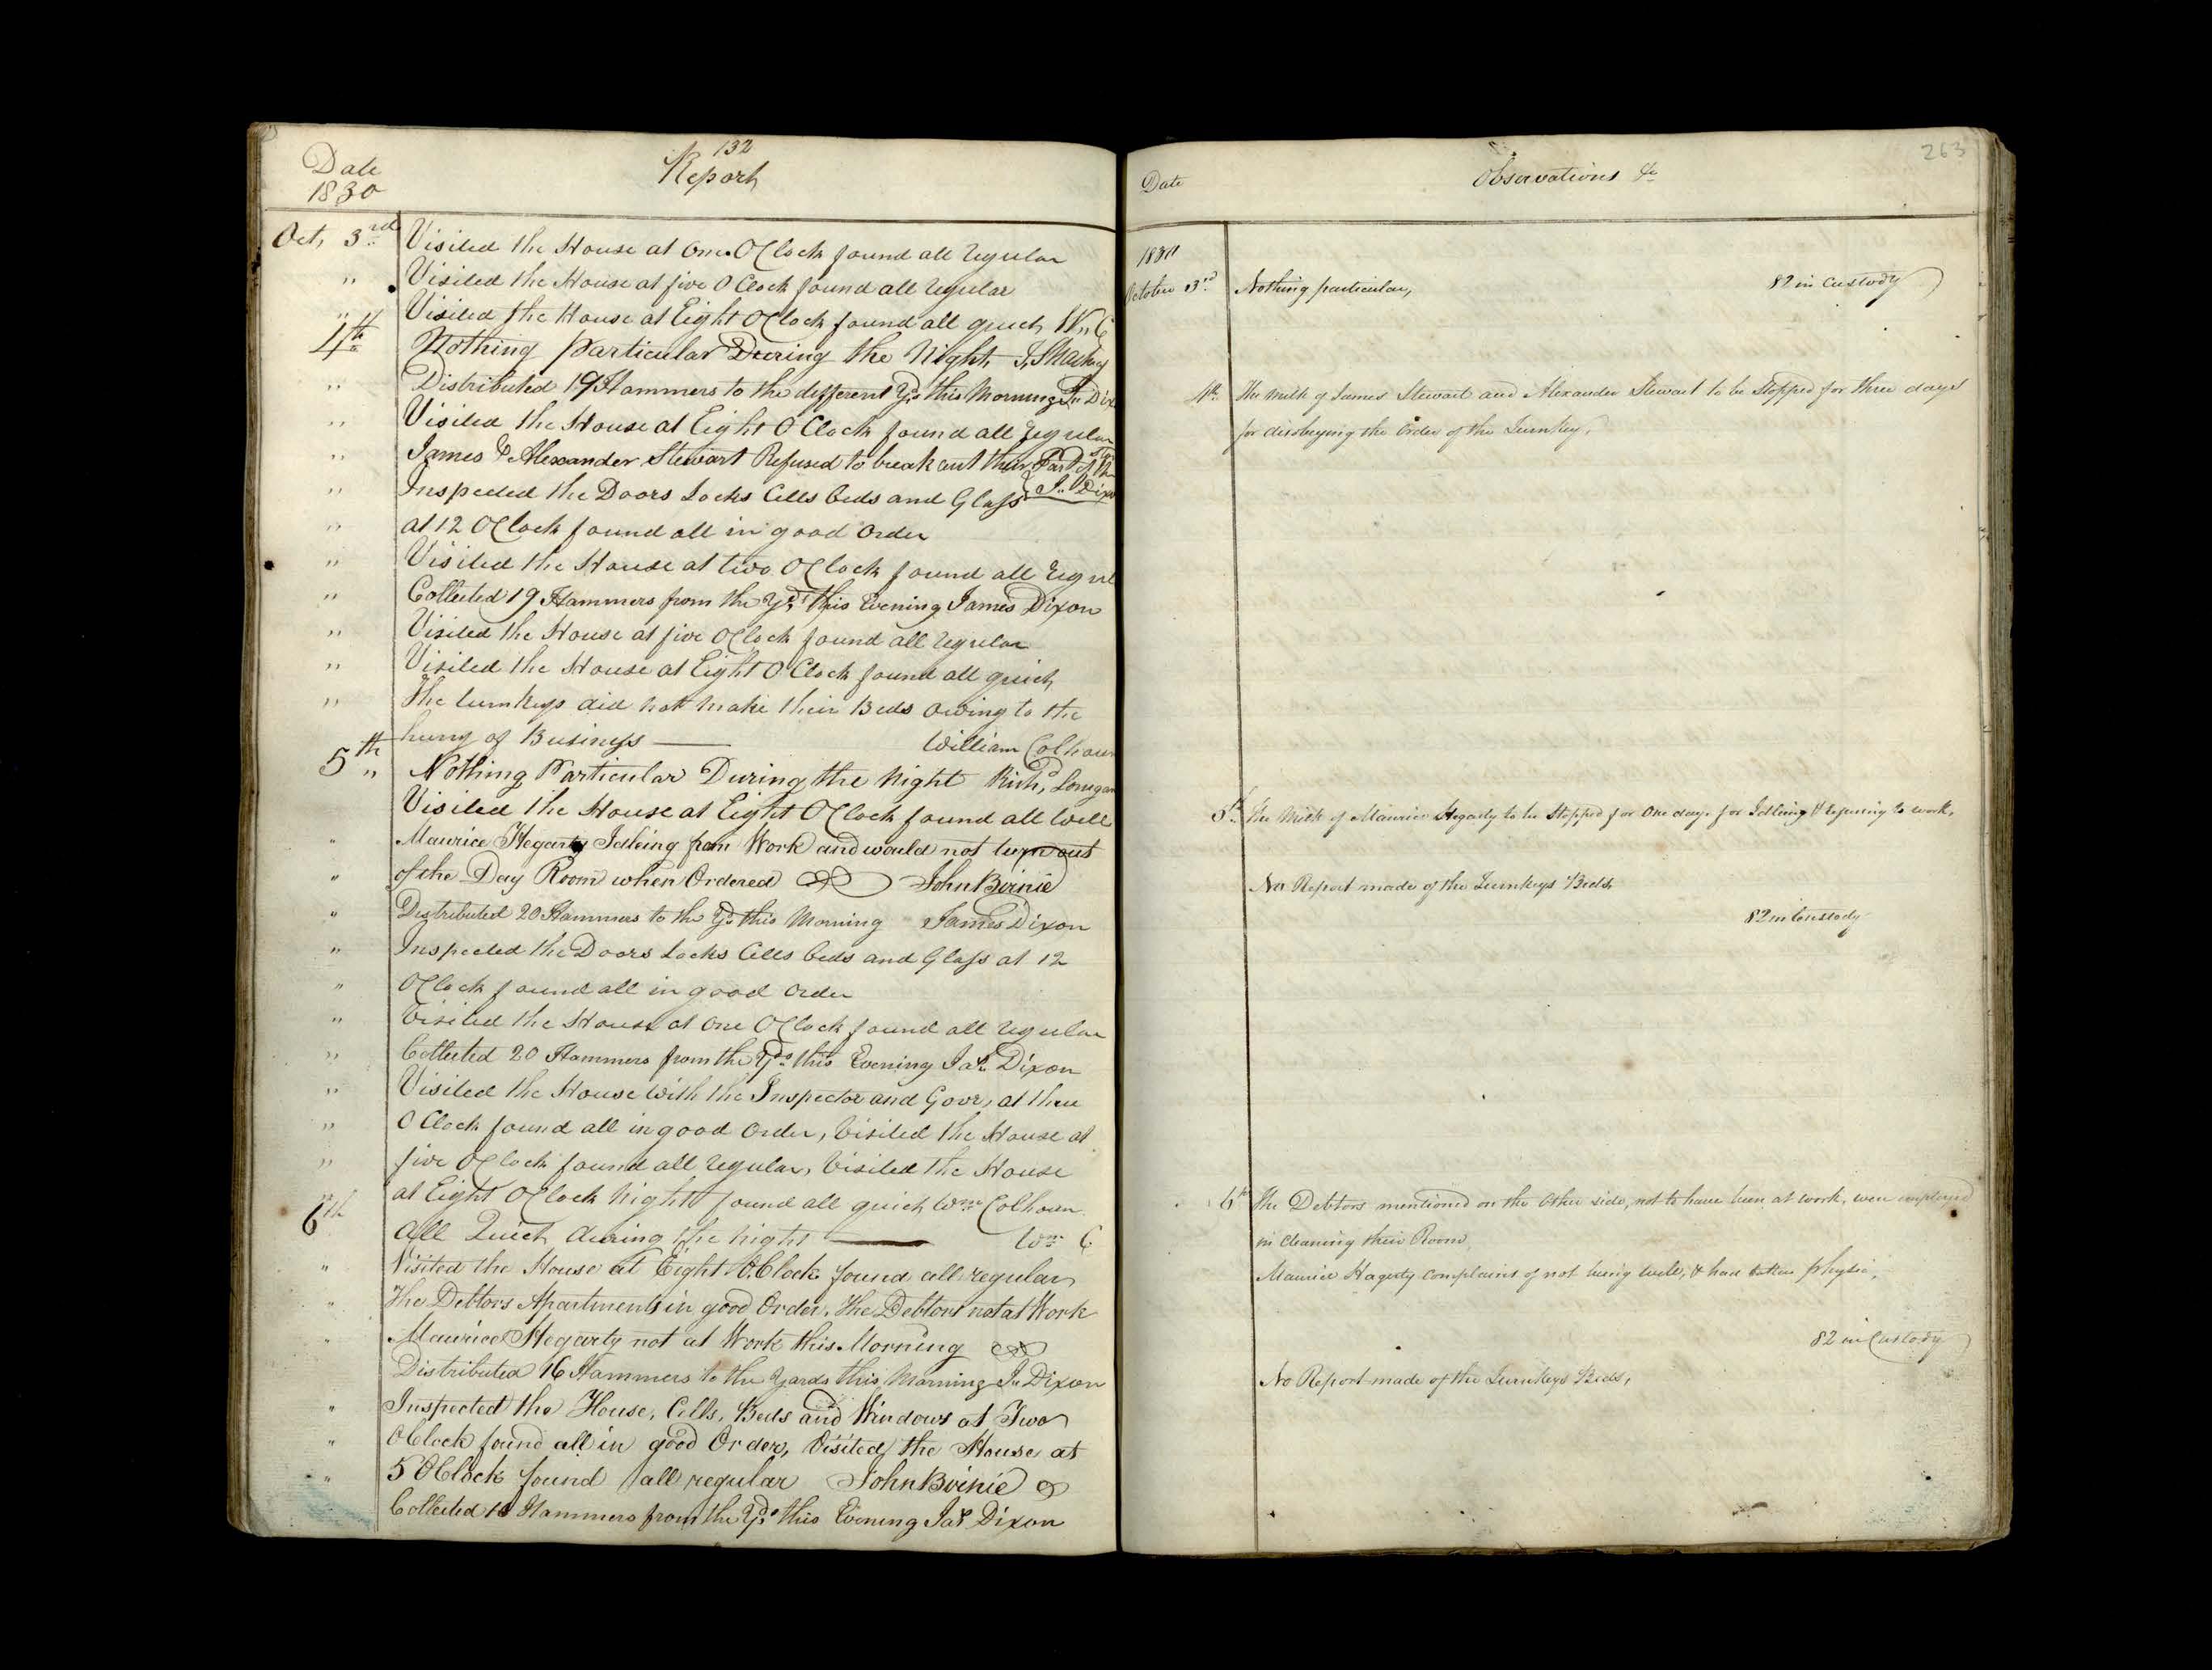 132
Date
1830
Report
Oct, 3rd Visited the House at One OClock found all regular
" Visited the House at five OClock found all regular
" Visited the House at Eight OClock found all quiet Wm C
4th Nothing Particular During the Night J, Sharkey
" Distributed 19 Hammers to the different Yds this Morning Js Dix
" Visited the House at Eight OClock found all regular
" James & Alexander Stewart Refused to break out their Part of
" Inspected the Doors Locks Cells beds and Glass Js Dixo
" at 12 OClock found all in good order
" Visited the House at two OClock found all regul
" Collected 19 Hammers from the Yds this Evening James Dixon
" Visited the House at five OClock found all regular
" Visited the House at Eight OClock found all quiet,
" The turnkeys did not make their Beds owing to the
hurry of Business — William Colhoun
5th " Nothing Particular During the Night Richd, Lonigan
Visited the House at Eight OClock found all well
" Maurice Hegarty Idleing from Work and would not turn out
" of the Day Room when Ordered John Birnie
" Distributed 20 Hammers to the Yds this Morning James Dixon
" Inspected the Doors Locks Cells beds and Glass at 12
" OClock found all in good order
" Visited the House at One OClock found all regular
" Collected 20 Hammers from the Yds this Evening Jas Dixon
" Visited the House with the Inspector and Govr, at three
" OClock found all in good order, Visited the House at
" five OClock found all regular, Visited the House
at Eight OClock Night found all quiet Wm Colhoun
6th All Quiet during the night — Wm C
" Visited the House at Eight O,Clock found all regular,
" The Debtors Apartments in good Order, The Debtors not at Work
" Maurice Hegarty not at Work this Morning
Distributed 16 Hammers to the Yards this Morning Js Dixon
" Inspected the House, Cells, Beds and Windows at Two
" OClock found all in good Order, Visited the House at
" 5 OClock found all regular John Birnie
Collected 16 Hammers from the Yds this Evening Jas Dixon
263
Date
Observations &c
1830
October 3rd Nothing particular, 82 in Custody
4th The Milk of James Stewart and Alexander Stewart to be Stopped for three days
for disobeying the Order of the Turnkey,
5th The Milk of Maurice Hegarty to be Stopped for One day for Idleing & refusing to work,
No Report made of the Turnkeys Beds,
82 in Custody
6th The Debtors mentioned on the Other side, not to have been at work, were employed
in Cleaning their Room,
Maurice Hagerty Complains of not being well, & had taken physic,
82 in Custody
No Report made of the Turnkeys Beds,